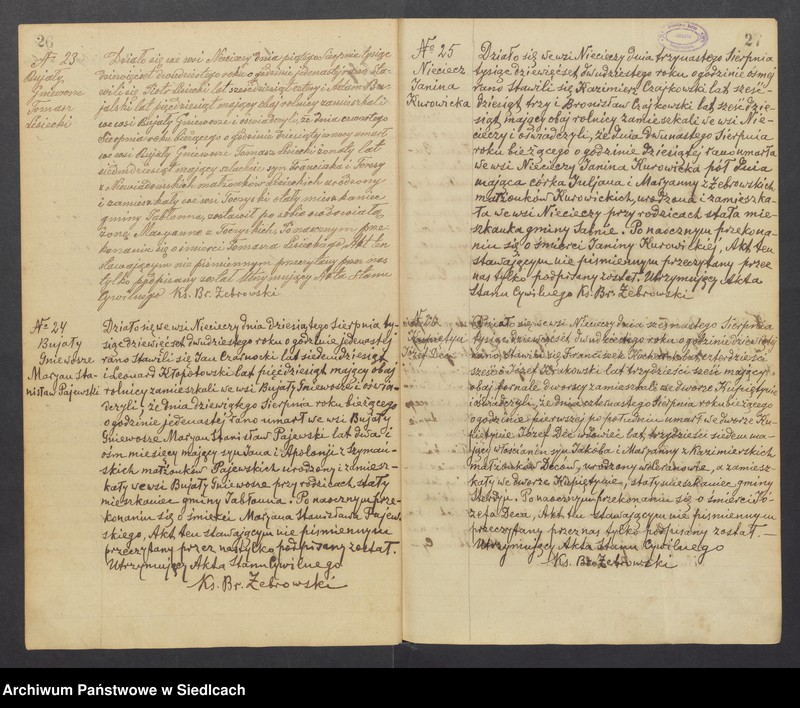 26
№ 23
Bujały
Gniewosze
Tomasz
Lisiecki
Działo się we wsi Niecieczy dnia piątego Sierpnia tysiąc
dziewięćset dwudziestego roku o godzinie jedenastej rano sta-
wili się Piotr Lisiecki lat sześćdziesiąt cztery i Adam Bu-
jalski lat pięćdziesiąt mający obaj rolnicy zamieszkali
we wsi Bujały Gniewosze i oświadczyli, że dnia czwartego
Sierpnia roku bieżącego o godzinie dziesiątej rano umarł
we wsi Bujały Gniewosze Tomasz Lisiecki żonaty lat
siedmdziesiąt mający szlachcic syn Franciszka i Teresy
z Niewiadomskich małżonków Lisieckich urodzony
i zamieszkały we wsi stały mieszkaniec
gminy Jabłonna, zostawił po sobie owdowiałą
żonę Maryannę z Po naocznym prze-
konaniu się o śmierci Tomasza Lisieckiego Akt ten
stawającym nie piśmiennym przeczytany przez nas
tylko podpisany został. Utrzymujący Akta Stanu
Cywilnego Ks. Br. Żebrowski
№ 24
Bujały
Gniewosze
Maryan Sta-
nisław Pajewski
Działo się we wsi Niecieczy dnia dziesiątego Sierpnia ty-
siąc dziewięćset dwudziestego roku o godzinie jedenastej
rano stawili się Jan Czarnocki lat siedemdziesiąt
i Leonard Kłopotowski lat pięćdziesiąt mający obaj
rolnicy zamieszkali we wsi Bujały Gniewosze i oświad-
czyli, że dnia dziewiątego Sierpnia roku bieżącego
o godzinie jedenastej rano umarł we wsi Bujały
Gniewosze Maryan Stanisław Pajewski lat dwa i
ośm miesięcy mający syn Jana i Apolonji z Szymań-
skich małżonków Pajewskich urodzony i zamiesz-
kały we wsi Bujały Gniewosze przy rodzicach stały
mieszkaniec gminy Jabłonna. Po naocznym prze-
konaniu się o śmierci Maryana Stanisława Pajew-
skiego, Akt ten stawającym nie piśmiennym
przeczytany przez nas tylko podpisany został.
Utrzymujący Akta Stanu Cywilnego
Ks. Br. Żebrowski
27
№ 25
Nieciecz
Janina
Kurowicka
Działo się we wsi Niecieczy dnia trzynastego Sierpnia
tysiąc dziewięćset dwudziestego roku o godzinie ósmej
rano stawili się Kazimierz Czajkowski lat sześć-
dziesiąt trzy i Bronisław Czajkowski lat sześćdzie-
siąt mający obaj rolnicy zamieszkali we wsi Nie-
cieczy i oświadczyli, że dnia dwunastego Sierpnia
roku bieżącego o godzinie dziesiątej rano umarła
we wsi Niecieczy Janina Kurowicka pół dnia
mająca córka Juljana i Maryanny z Żebrowskich
małżonków Kurowickich, urodzona i zamieszka-
ła we wsi Niecieczy przy rodzicach stała mie-
szkanka gminy Sabnie. Po naocznym przekona-
niu się o śmierci Janiny Kurowickiej, Akt ten
stawającym nie piśmiennym przeczytany przez
nas tylko podpisany został. Utrzymujący Akta
Stanu Cywilnego Ks. Br. Żebrowski
Kupientyn
Józef Dec
Działo się we wsi Niecieczy dnia szesnastego Sierpnia
tysiąc dziewięćset dwudziestego roku o godzinie dziesiątej
rano stawili się Franciszek lat czterdzieści
sześć i Józef Krukowski lat trzydzieści sześć mający
obaj fornale dworscy zamieszkali we dworze Kupientynie
i oświadczyli, że dnia czternastego Sierpnia roku bieżącego
o godzinie pierwszej po południu umarł we dworze Ku-
pientynie Józef Dec lat trzydzieści siedem ma-
jący włościanin syn Jakóba i Maryanny z Kazimierskich
małżonków Deców, urodzony w a zamiesz-
kały we dworze Kupientynie, stały mieszkaniec gminy
Sterdyń. Po naocznym przekonaniu się o śmierci Jó-
zefa Deca, Akt ten stawającym nie piśmiennym
przeczytany przez nas tylko podpisany został. —
Utrzymujący Akta Stanu Cywilnego
Ks. Br. Żebrowski
Archiwum Państwowe w Siedlcach